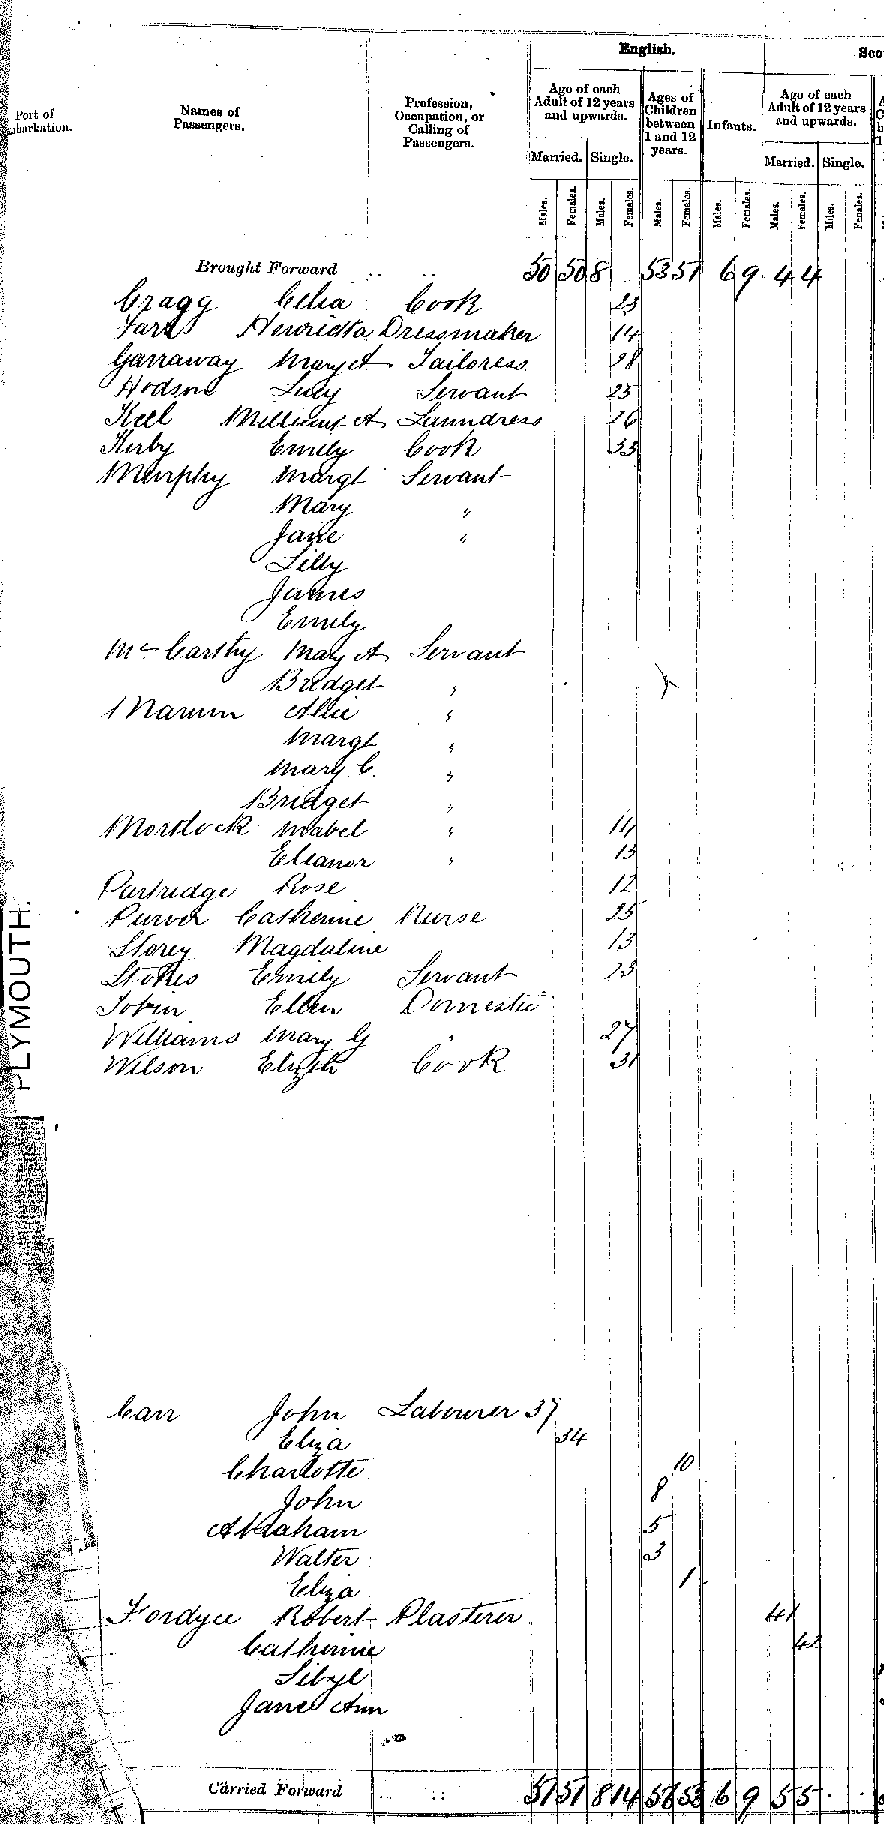 English.
Sco
Port of
barkation.
Names of
Passengers.
Profession,
Occupation, or
Calling of
Passengers.
Age of each
Adult of 12 years
and upwards.
Ages of
Children
between
1 and 12
years.
Infants.
Age of each
Adult of 12 years
and upwards.
Married. Single.
Married. Single.
Males. Females. Males. Females. Males. Females. Males. Females. Males. Females. Males. Females.
Brought Forward .. .. 50 50 8 53 51 6 9 4 4
Cragg Celia Cook 23
Henrietta Dressmaker 14
Garraway Mary A Tailoress 28
Hodson Lucy Servant 25
Keel Millicent A Laundress 26
Kirby Emily Cook 33
Murphy Margt Servant
Mary "
Jane "
Lilly
James
Emily
McCarthy Mary A Servant
Bridget "
Marum Alice "
Margt "
Mary C. "
Bridget "
Mortlock Mabel " 14
Eleanor " 13
Partridge Rose 12
Purver Catherine Nurse 25
Storey Magdaline 13
Stokes Emily Servant 23
Tobin Ellen Domestic
Williams Mary G " 27
Wilson Elizth Cook 31
PLYMOUTH.
Carr John Labourer 37
Eliza 34
Charlotte 10
John 8
Abraham 5
Walter 3
Eliza 1
Fordyce Robert Plasterer 41
Catherine 42
Sibyl
Jane Ann
Carried Forward .. :: 51 51 8 14 56 53 6 9 5 5